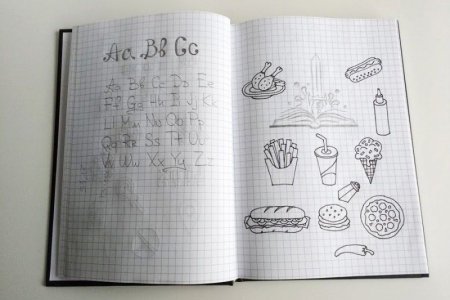 Aa Bb Cc
Aa Bb Cc Dd Ee
Ff Gg Hh Ii Jj Kk
Ll Mm Nn Oo Pp
Qq Rr Ss Tt Uu
Vv Ww Xx Yy Zz